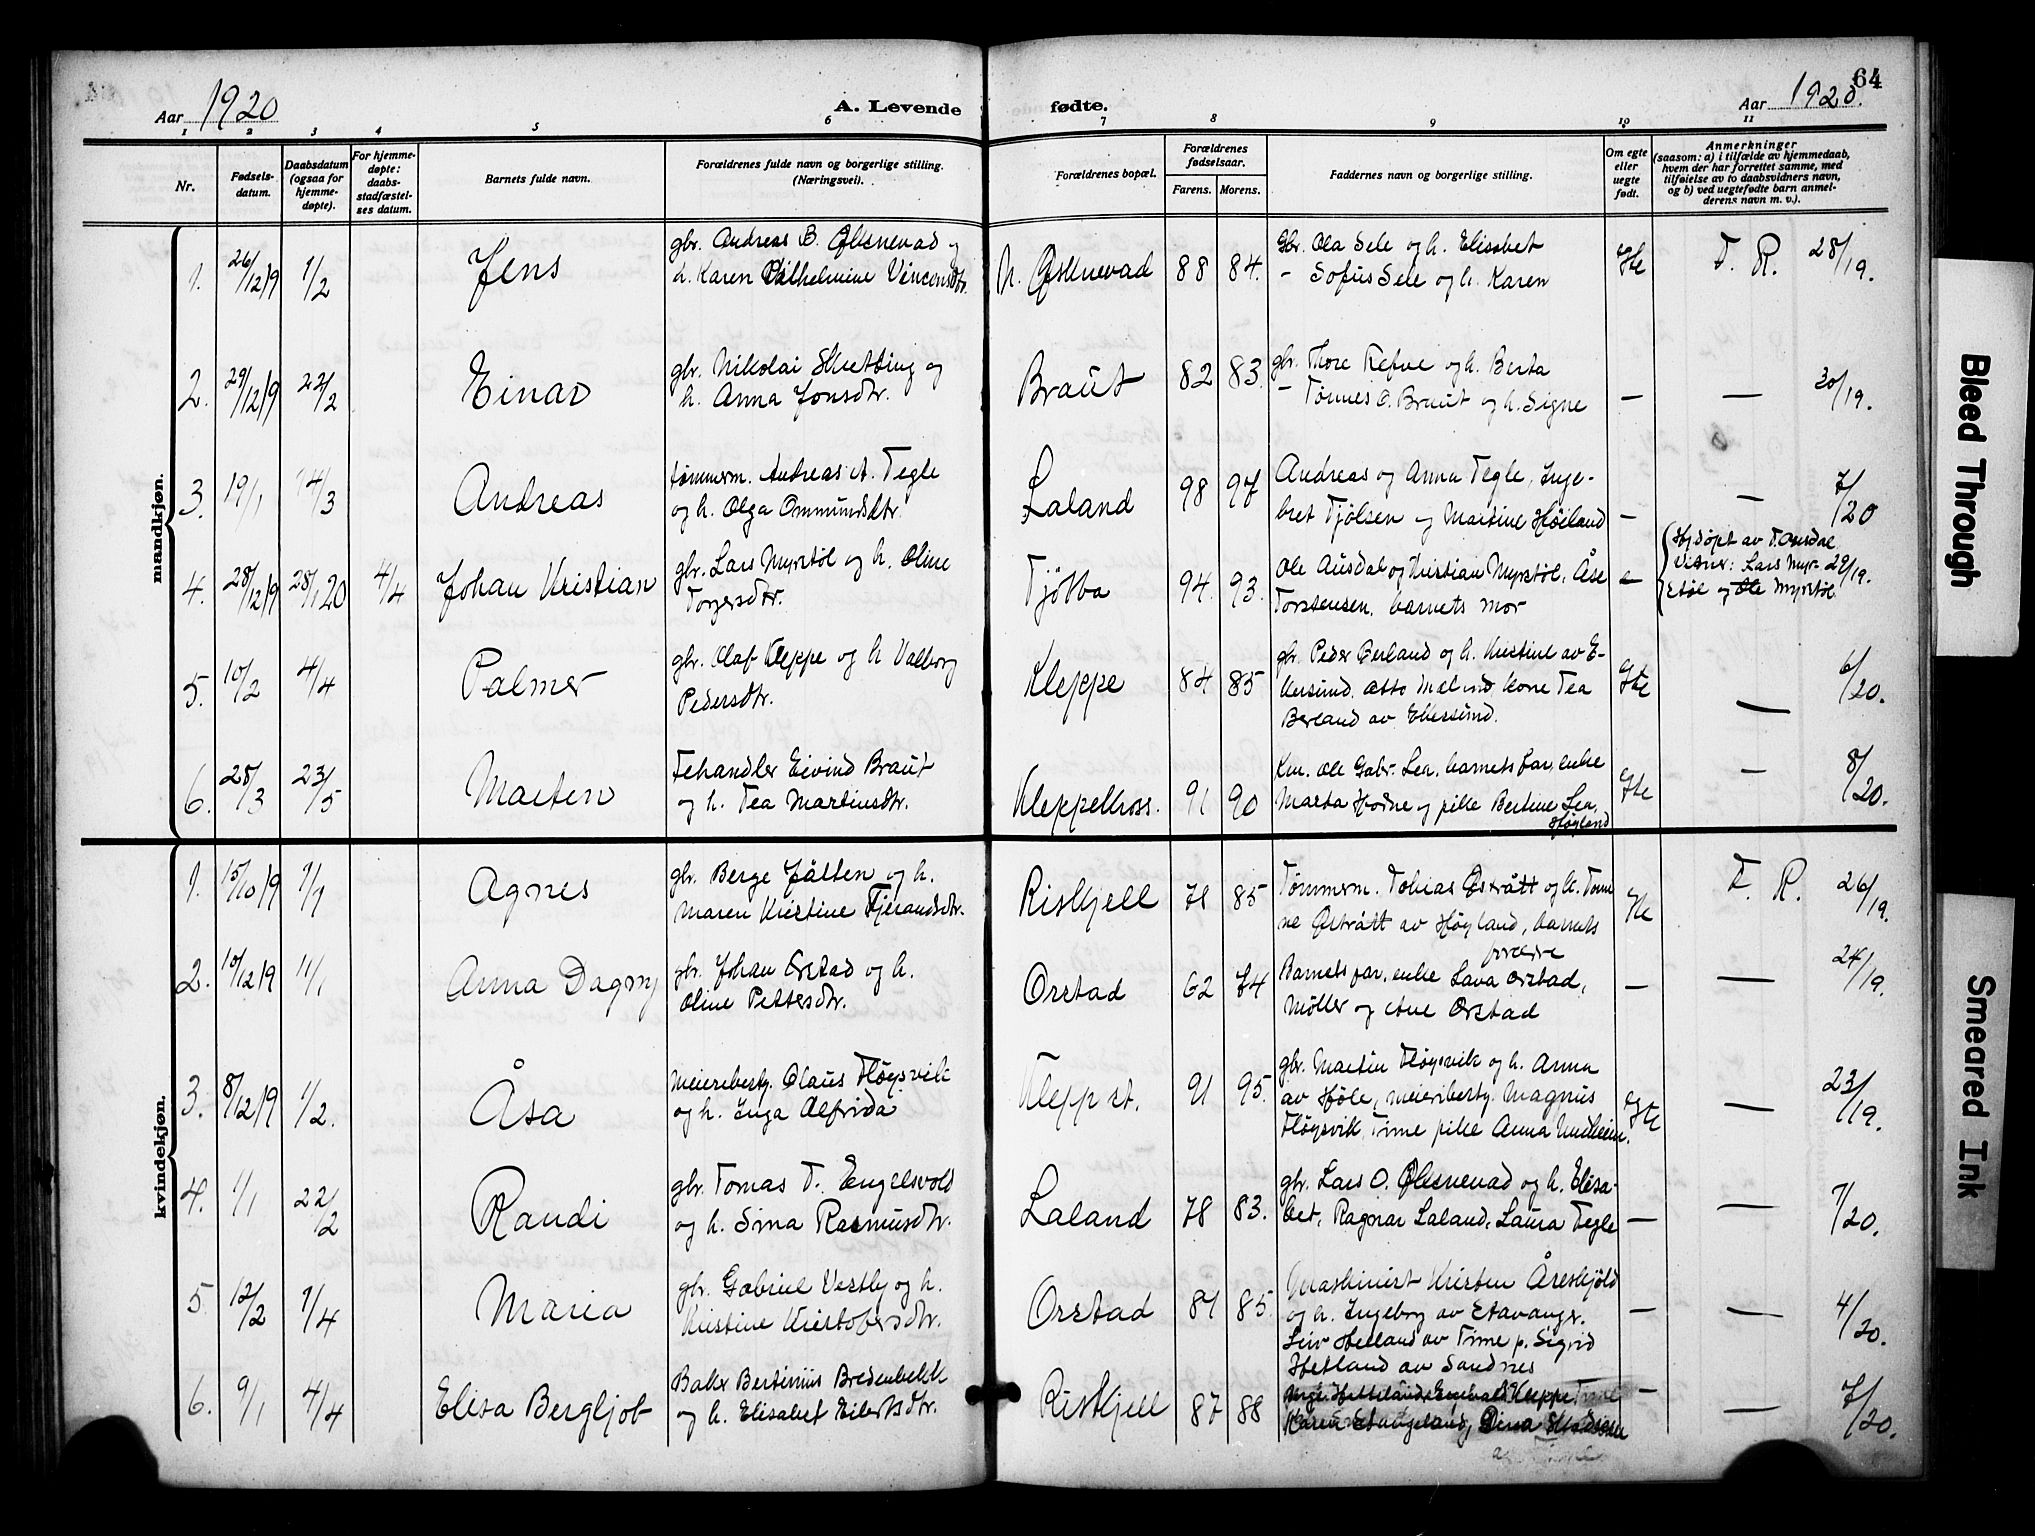 64
Aar 1920
A. Levende
fødte.
Aar 1920.
1 2 3 4 5 6 7 8 9 10 11
Nr.
Fødsels-
datum.
Daabsdatum
(ogsaa for
hjemme-
døpte).
For hjemme-
døpte:
daabs-
stadfæstel-
ses datum.
Barnets fulde navn.
Forældrenes fulde navn og borgerlige stilling.
(Næringsvei).
Forældrenes bopæl.
Forældrenes
fødselsaar.
Farens. Morens.
Faddernes navn og borgerlige stilling.
Om egte
eller
uegte
født.
Anmerkninger
(saasom: a) i tilfælde av hjemmedaab,
hvem der har forrettet samme, med
tilføielse av to daabsvidners navn,
og b) ved uegtefødte barn anmel-
derens navn m. v.).
mandkjøn.
1. 26/12 19 1/2 Jens
gbr. Andreas B. Øksnevad og
h. Karen Vilhelmine Vincensdtr.
N. Øksnevad 88 84.
Gbr. Ola Sele og h. Elisabet
- Sofus Sele og h. Karen
Gte F. R. 28/19.
2. 29/12 19 22/2 Einar
gbr. Nikolai Skretting og
h. Anna Jonsdtr.
Braut 82 83.
gbr. Thore Refve og h. Berta
- Tønnes O. Braut og h. Signe
— — 30/19.
3. 19/1 14/3 Andreas
tømmerm. Andreas A. Tegle
og h. Olga Ommundsdtr.
Laland 98 97
Andreas og Anna Tegle, Inge-
bret Tjølsen og Martine Høiland
— — 7/20
4. 28/12 19 28/1 20 4/4 Johan Kristian
gbr. Lars Myrstøl og h. Oline
Torgersdtr.
Tjøtta 94. 93.
Ole Ausdal og Kristian Myrstøl, Åse
Torstensen, barnets mor
—
Hj.døpt av T. Ousdal
Vitner: Lars Myr- 29/19.
støl og Ole Myrstøl
5. 10/2 4/4 Palmer
gbr. Olaf Kleppe og h. Valborg
Pedersdtr.
Kleppe 84 85
gbr. Peder Berland og h. Kristine av E-
kersund, Otto Mæland, kone Tea
Berland av Ekersund.
Gte — 6/20.
6. 28/3 23/5 Marten
Fehandler Eivind Braut
og h. Tea Martinsdtr.
Kleppekross. 91 90
Km. Ole Gabr. Lea, barnets far, enke
Marta Hodne og pike Bertine Lea,
Høyland
Gte — 8/20.
kvindekjøn.
1. 15/10 19 1/1 Agnes
gbr. Berge Jåtten og h.
Maren Kristine Fjerandsdtr.
Riskjell 71 85
Tømmerm. Tobias Østrått og h. Tom-
ine Østrått av Høyland, barnets
forældre
Gte F. R. 26/19.
2. 10/12 19 11/1 Anna Dagny
gbr. Johan Orstad og h.
Oline Pettersdtr.
Orstad 62 74
Barnets far, enke Lava Orstad,
Møller og Ane Orstad
— — 24/19.
3. 8/12 19 1/2. Åsa
Meieribesty. Olaus Fløysvik
og h. Inga Alfrida
Klepp st. 91 95.
gbr. Martin Fløysvik og h. Anna
av Høle, meieribesty. Magnus
Fløysvik, Time pike Anna Undheim.
Gte — 23/19.
4. 1/1 22/2 Randi
gbr. Tomas T. Engelsvold
og h. Sina Rasmusdtr.
Laland 78 83.
gbr. Lars O. Øksnevad og h. Elisa-
bet, Ragnar Laland, Laura Tegle
— — 7/20.
5. 12/2 1/4 Maria
gbr. Gabriel Vestly og h.
Kristine Kristofersdtr.
Orstad 81 85.
Maskinist Kristen Åreskjold
og h. Ingeborg av Stavanger.
Siv Helland av Time p. Sigrid
Hetland av Sandnes
— — 4/20.
6. 9/1 4/4 Elisa Bergljot
Baker Bertinius Bredenbekk
og h. Elisabet Eilertsdtr.
Riskjell 87 88
Kleppe, Time
Karen
Time
— — 7/20.
Bleed Through
Smeared Ink